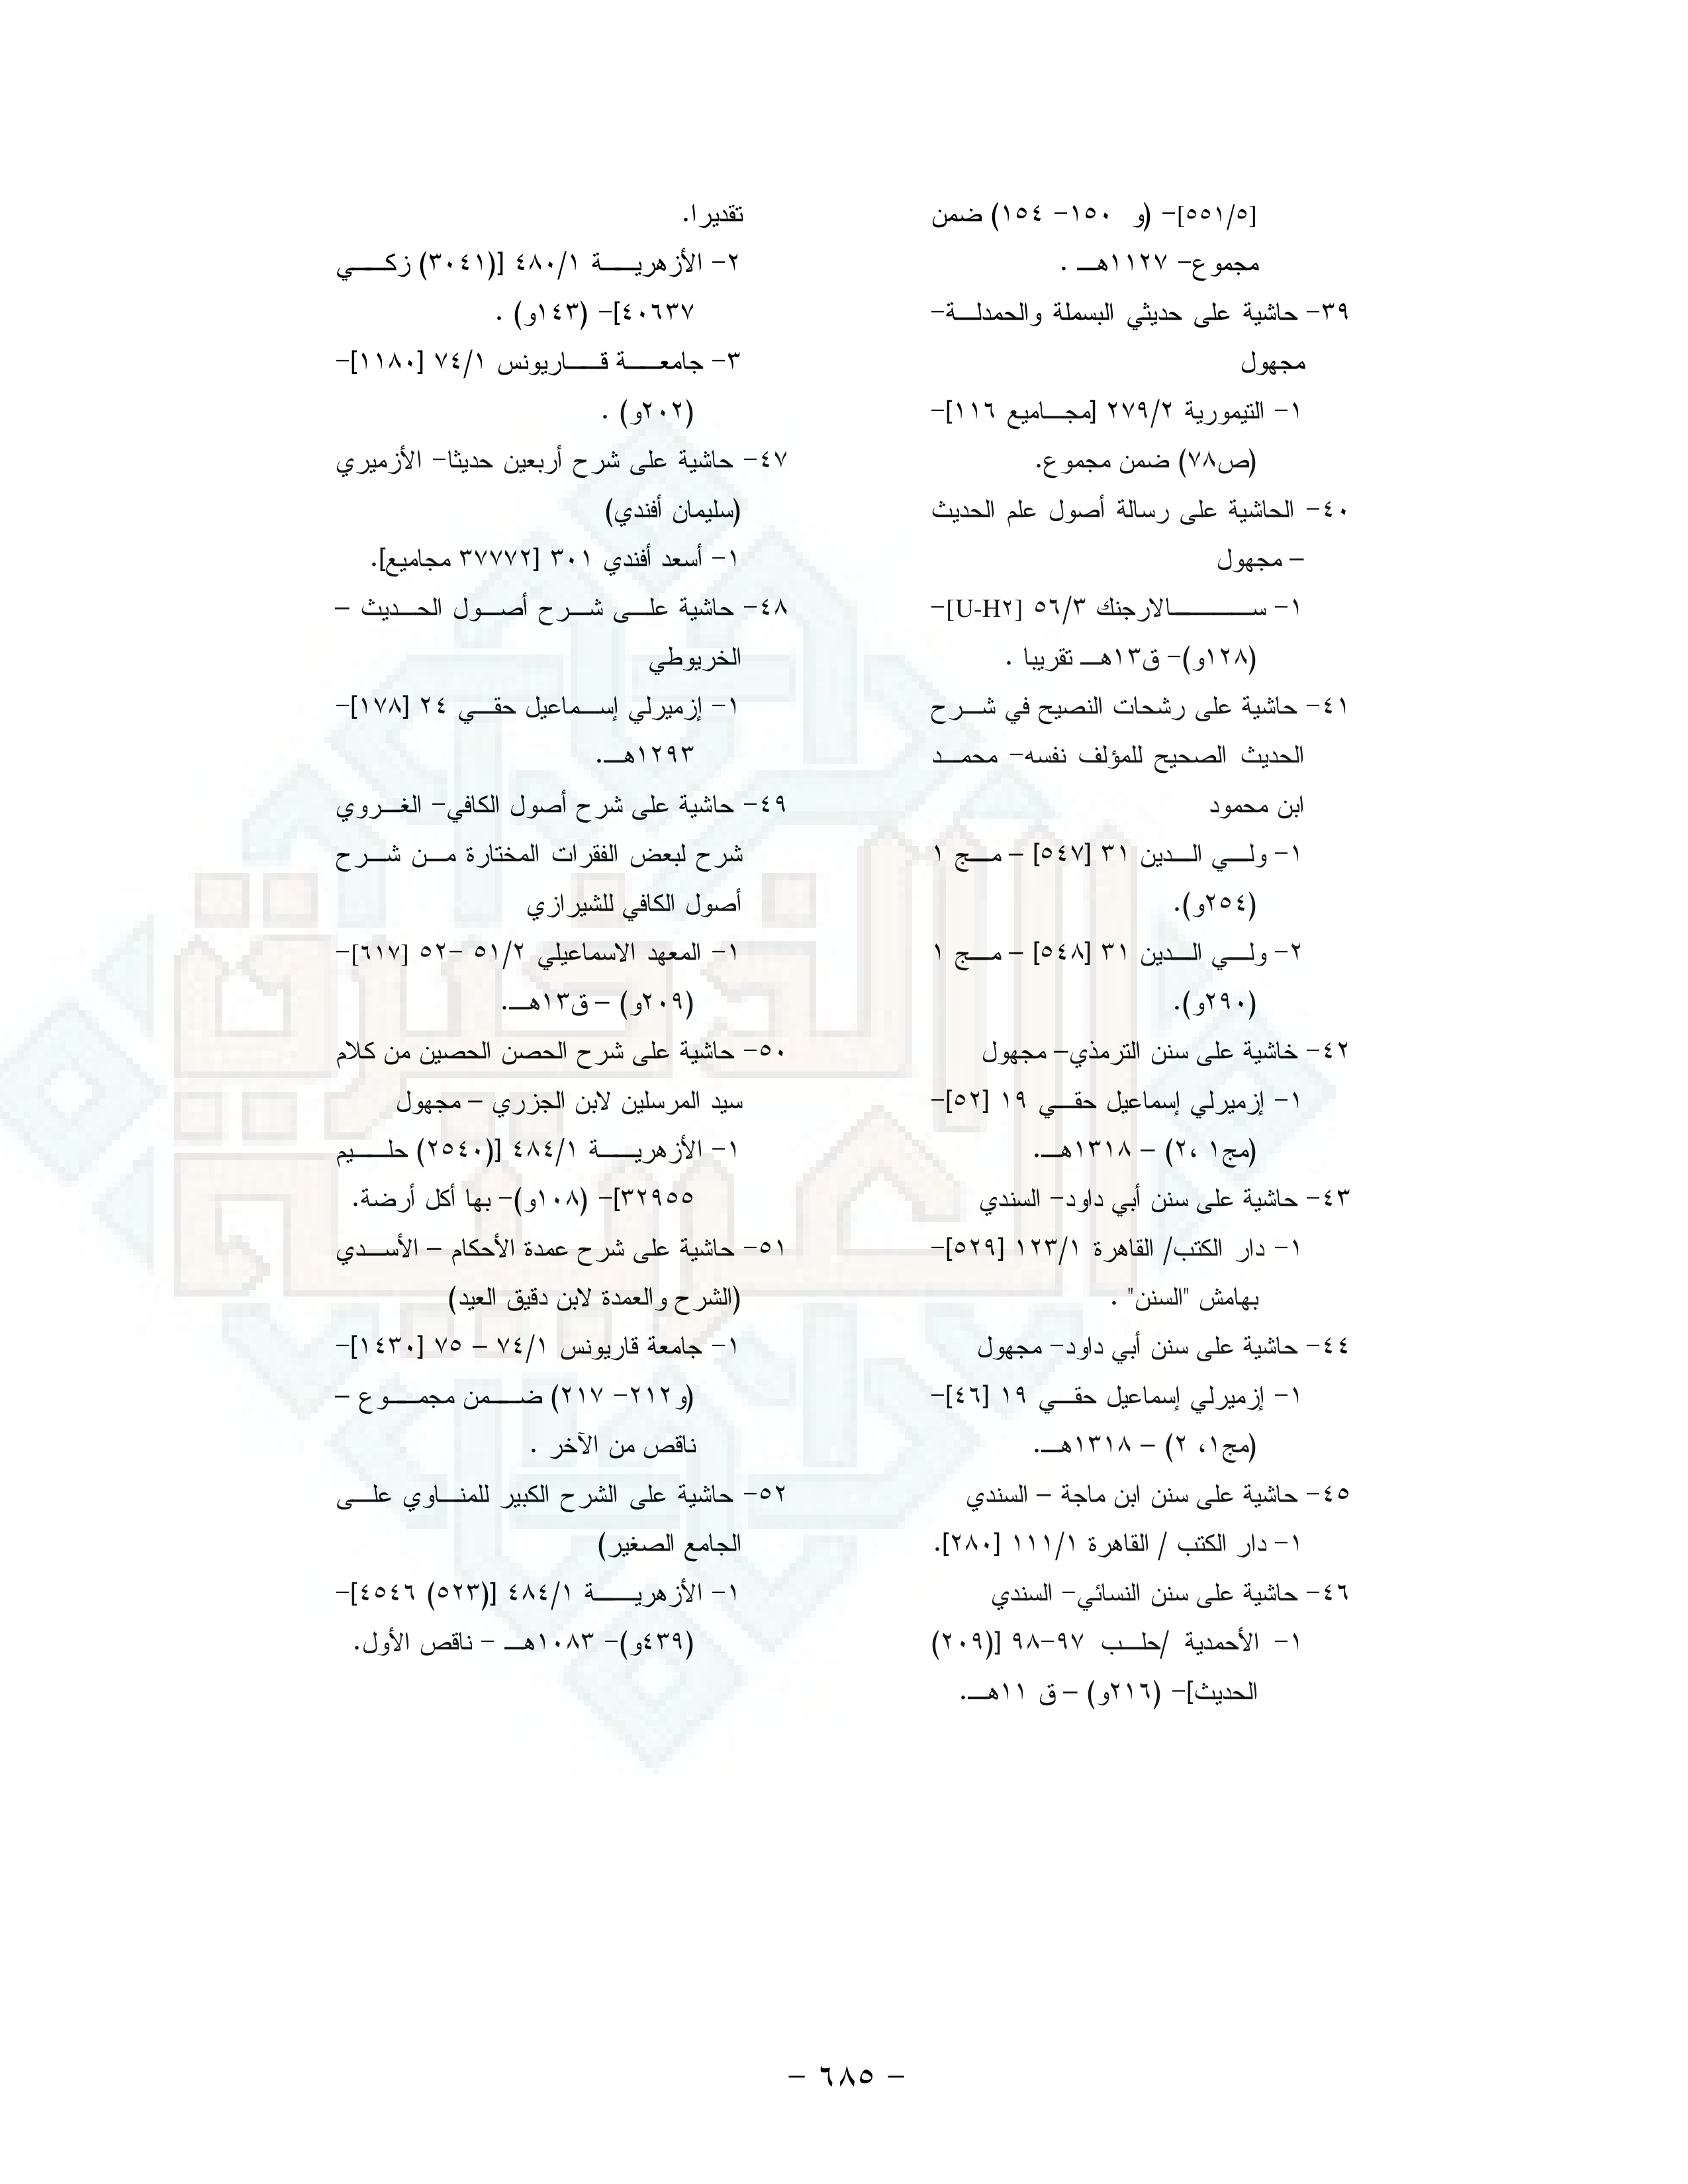 [٥٥١/٥]- (و ١٥٠- ١٥٤) ضمن
مجموع- ١١٢٧هـ .
٣٩- حاشية على حديثي البسملة والحمدلة-
مجهول
١- التيمورية ٢٧٩/٢ [مجاميع ١١٦]-
(ص٧٨) ضمن مجموع.
٤٠- الحاشية على رسالة أصول علم الحديث
– مجهول
١- سالارجنك ٥٦/٣ [U-H٢]-
(١٢٨و)- ق١٣هـ تقريبا .
٤١- حاشية على رشحات النصيح في شرح
الحديث الصحيح للمؤلف نفسه- محمد
ابن محمود
١- ولي الدين ٣١ [٥٤٧] – مج ١
(٢٥٤و).
٢- ولي الدين ٣١ [٥٤٨] – مج ١
(٢٩٠و).
٤٢- خاشية على سنن الترمذي– مجهول
١- إزميرلي إسماعيل حقي ١٩ [٥٢]-
(مج١ ،٢) – ١٣١٨هـ.
٤٣- حاشية على سنن أبي داود- السندي
١- دار الكتب/ القاهرة ١٢٣/١ [٥٢٩]-
بهامش "السنن" .
٤٤- حاشية على سنن أبي داود- مجهول
١- إزميرلي إسماعيل حقي ١٩ [٤٦]-
(مج١، ٢) – ١٣١٨هـ.
٤٥- حاشية على سنن ابن ماجة – السندي
١- دار الكتب / القاهرة ١١١/١ [٢٨٠].
٤٦- حاشية على سنن النسائي- السندي
١- الأحمدية /حلب ٩٧-٩٨ [(٢٠٩)
الحديث]- (٢١٦و) – ق ١١هـ.
تقديرا.
٢- الأزهرية ٤٨٠/١ [(٣٠٤١) زكي
٤٠٦٣٧]- (١٤٣و) .
٣- جامعة قاريونس ٧٤/١ [١١٨٠]-
(٢٠٢و) .
٤٧- حاشية على شرح أربعين حديثا- الأزميري
(سليمان أفندي)
١- أسعد أفندي ٣٠١ [٣٧٧٧٢ مجاميع].
٤٨- حاشية على شرح أصول الحديث –
الخريوطي
١- إزميرلي إسماعيل حقي ٢٤ [١٧٨]-
١٢٩٣هـ.
٤٩- حاشية على شرح أصول الكافي- الغروي
شرح لبعض الفقرات المختارة من شرح
أصول الكافي للشيرازي
١- المعهد الاسماعيلي ٥١/٢ -٥٢ [٦١٧]-
(٢٠٩و) – ق١٣هـ.
٥٠- حاشية على شرح الحصن الحصين من كلام
سيد المرسلين لابن الجزري – مجهول
١- الأزهرية ٤٨٤/١ [(٢٥٤٠) حليم
٣٢٩٥٥]- (١٠٨و)- بها أكل أرضة.
٥١- حاشية على شرح عمدة الأحكام – الأسدي
(الشرح والعمدة لابن دقيق العيد)
١- جامعة قاريونس ٧٤/١ – ٧٥ [١٤٣٠]-
(و٢١٢- ٢١٧) ضمن مجموع –
ناقص من الآخر .
٥٢- حاشية على الشرح الكبير للمناوي على
الجامع الصغير)
١- الأزهرية ٤٨٤/١ [(٥٢٣) ٤٥٤٦]-
(٤٣٩و)- ١٠٨٣هـ - ناقص الأول.
- ٦٨٥ -